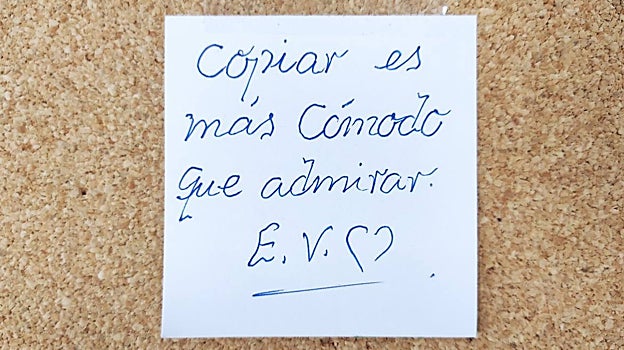 Copiar es
más Cómodo
que admirar.
E. V.